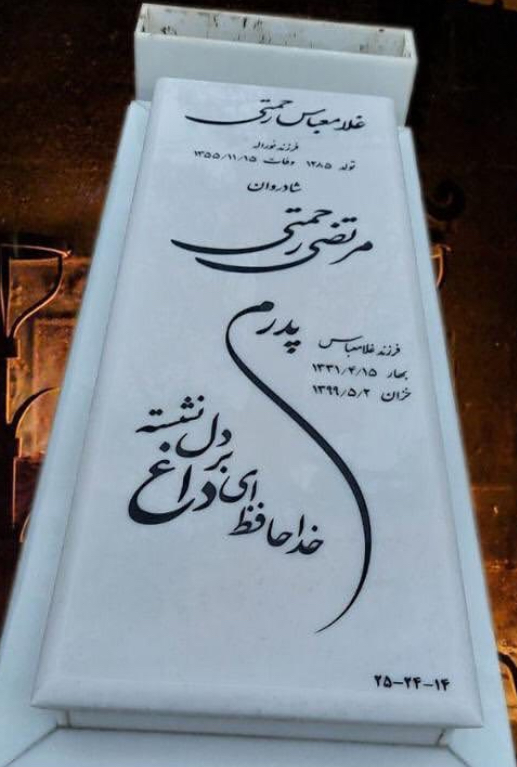 غلامعباس رحمتی
فرزند نوراله
تولد ۱۲۸۵ وفات ۱۳۵۵/۱۱/۱۵
شادروان
مرتضی رحمتی
فرزند غلامعباس
بهار ۱۳۳۱/۴/۱۵
خزان ۱۳۹۹/۵/۲
پدرم
خداحافظ ای داغ
بر دل نشسته
۲۵-۲۴-۱۴